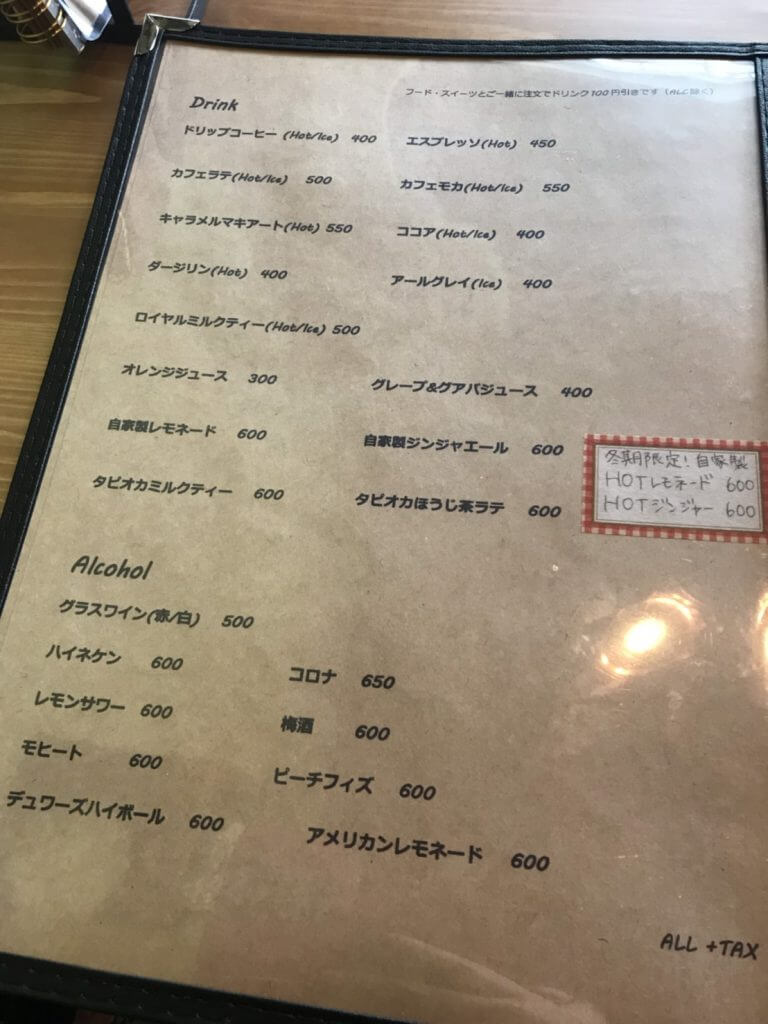 フード・スイーツとご一緒に注文でドリンク100円引きです（ALC除く）
Drink
ドリップコーヒー (Hot/Ice) 400
エスプレッソ(Hot) 450
カフェラテ(Hot/Ice) 500
カフェモカ(Hot/Ice) 550
キャラメルマキアート(Hot) 550
ココア(Hot/Ice) 400
ダージリン(Hot) 400
アールグレイ(Ice) 400
ロイヤルミルクティー(Hot/Ice) 500
オレンジジュース 300
グレープ&グアバジュース 400
自家製レモネード 600
自家製ジンジャエール 600
冬期限定！自家製
HOTレモネード 600
HOTジンジャー 600
タピオカミルクティー 600
タピオカほうじ茶ラテ 600
Alcohol
グラスワイン(赤/白) 500
ハイネケン 600
コロナ 650
レモンサワー 600
梅酒 600
モヒート 600
ピーチフィズ 600
デュワーズハイボール 600
アメリカンレモネード 600
ALL +TAX